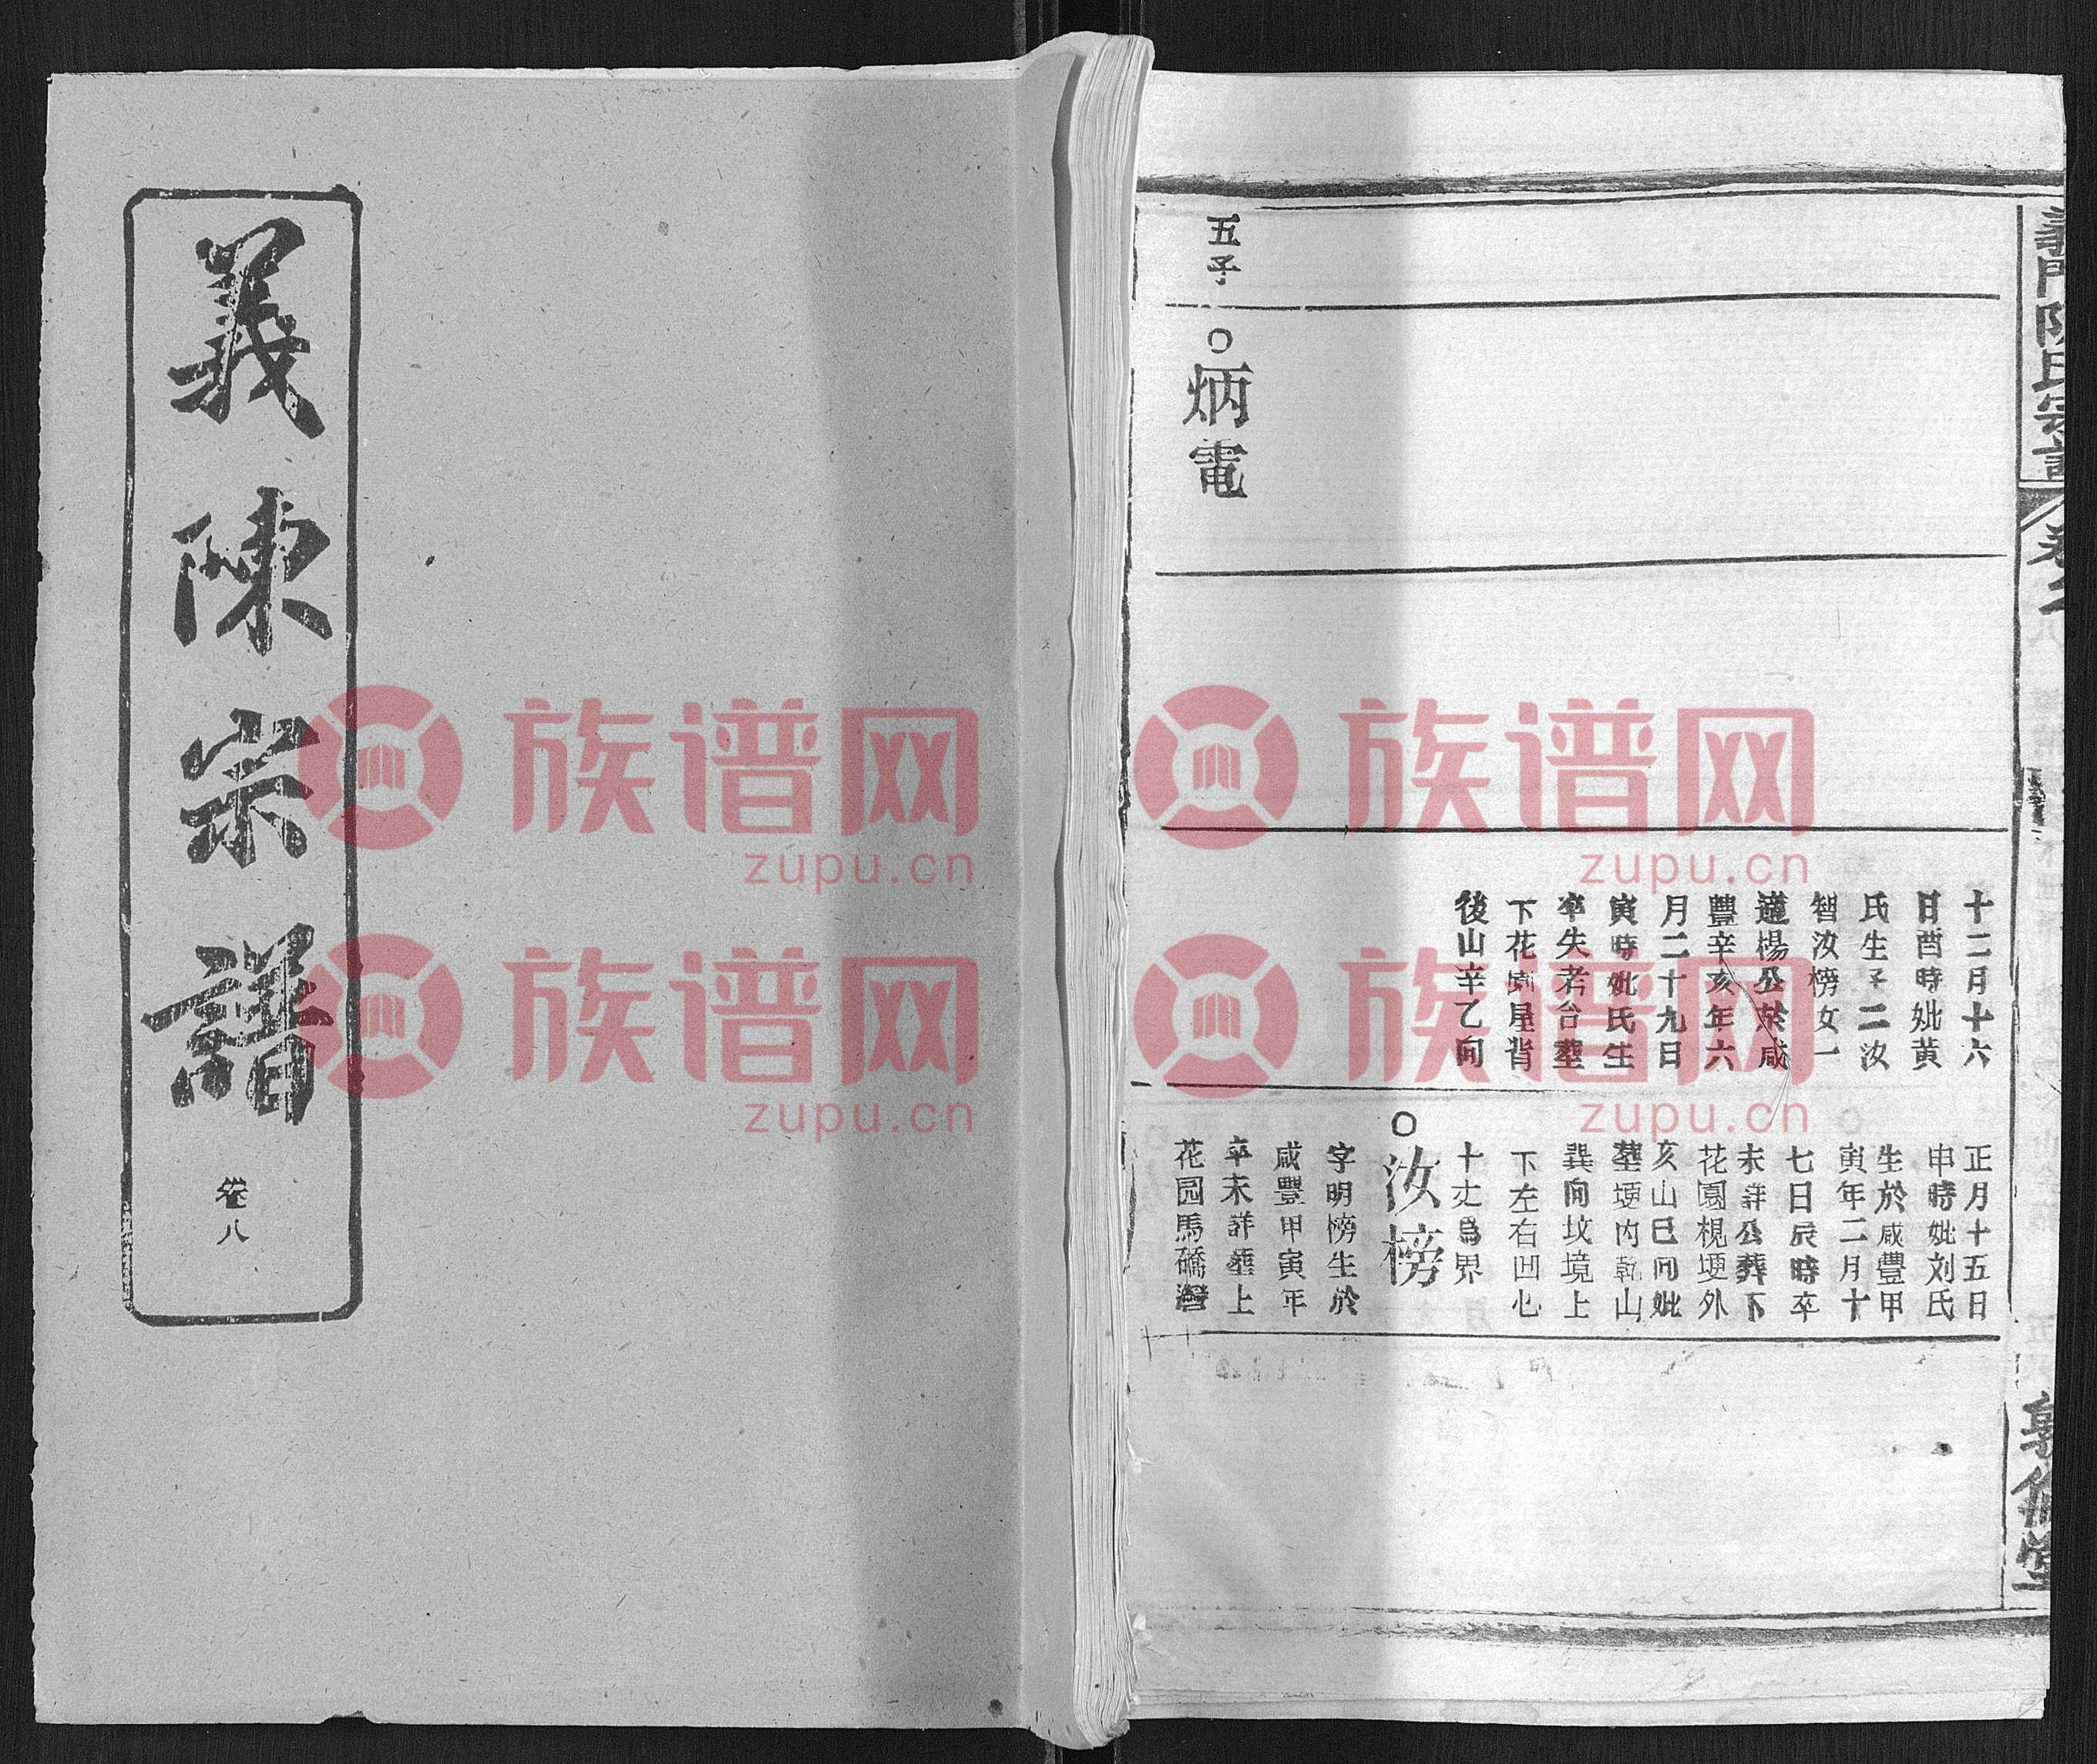 義門陳氏宗譜
五子
○炳電
十二月十六
日酉時妣黃
氏生子二汝
智汝榜女一
適楊公於咸
豐辛亥年六
月二十九日
寅時妣氏生
卒失考合塟
下花園屋背
後山辛乙向
正月十五日
申時妣刘氏
生於咸豐甲
寅年二月十
七日辰時卒
未詳公葬下
花園梘埂外
亥山巳向妣
塟埂內乾山
巽向坟境上
下左右囬心
十丈爲界
○汝榜
字明榜生於
咸豐甲寅年
卒未詳塟上
花园馬礄灣
義陳宗譜
卷八
族谱网
zupu.cn
族谱网
zupu.cn
族谱网
zupu.cn
族谱网
zupu.cn